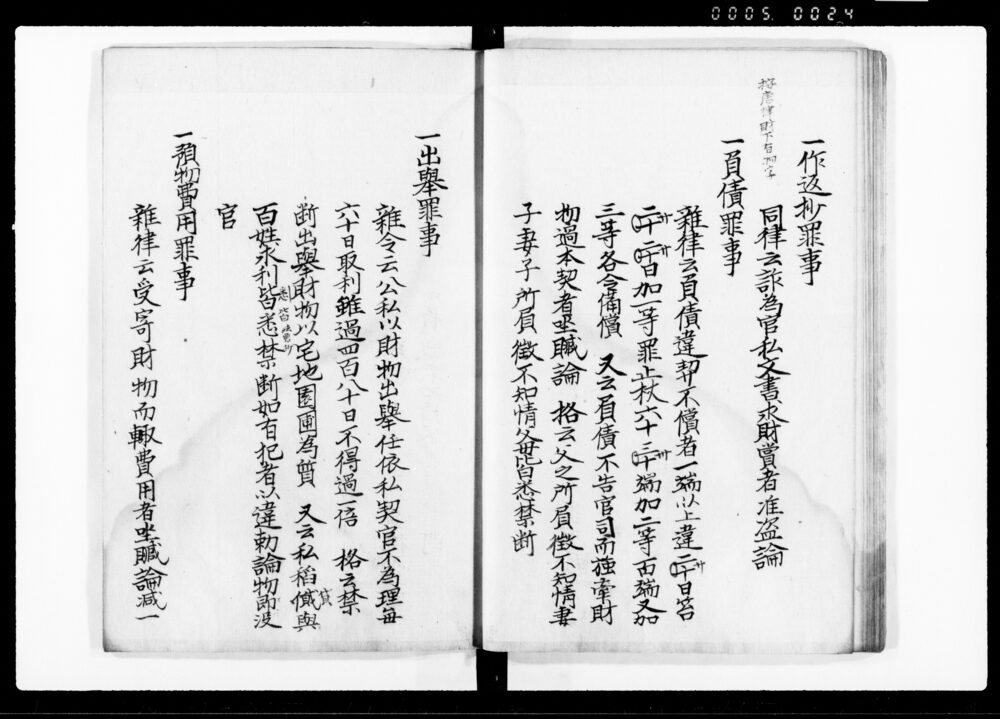 0005. 0024
按唐律財下有物字
一作返抄罪事
同律云詐為官私文書求財賞者准盗論
一負債罪事
雜律云負債違契不償者一端以上違二十日笞
二十二十日加一等罪止杖六十三十端加二等百端又加
三等各令備償 又云負債不告官司而強牽財
物過本契者坐贓論 格云父之所負徴不知情妻
子妻子所負徴不知情父母皆悉禁断
一出舉罪事
雜令云公私以財物出舉任依私契官不為理毎
六十日取利雖過四百八十日不得過一倍 格云禁
断出舉財物以宅地園圃為質 又云私稻儎與
貸
百姓求利皆悉禁断如有犯者以違勅論物即没
官
一預物費用罪事
雜律云受寄財物而輙費用者坐贓論減一